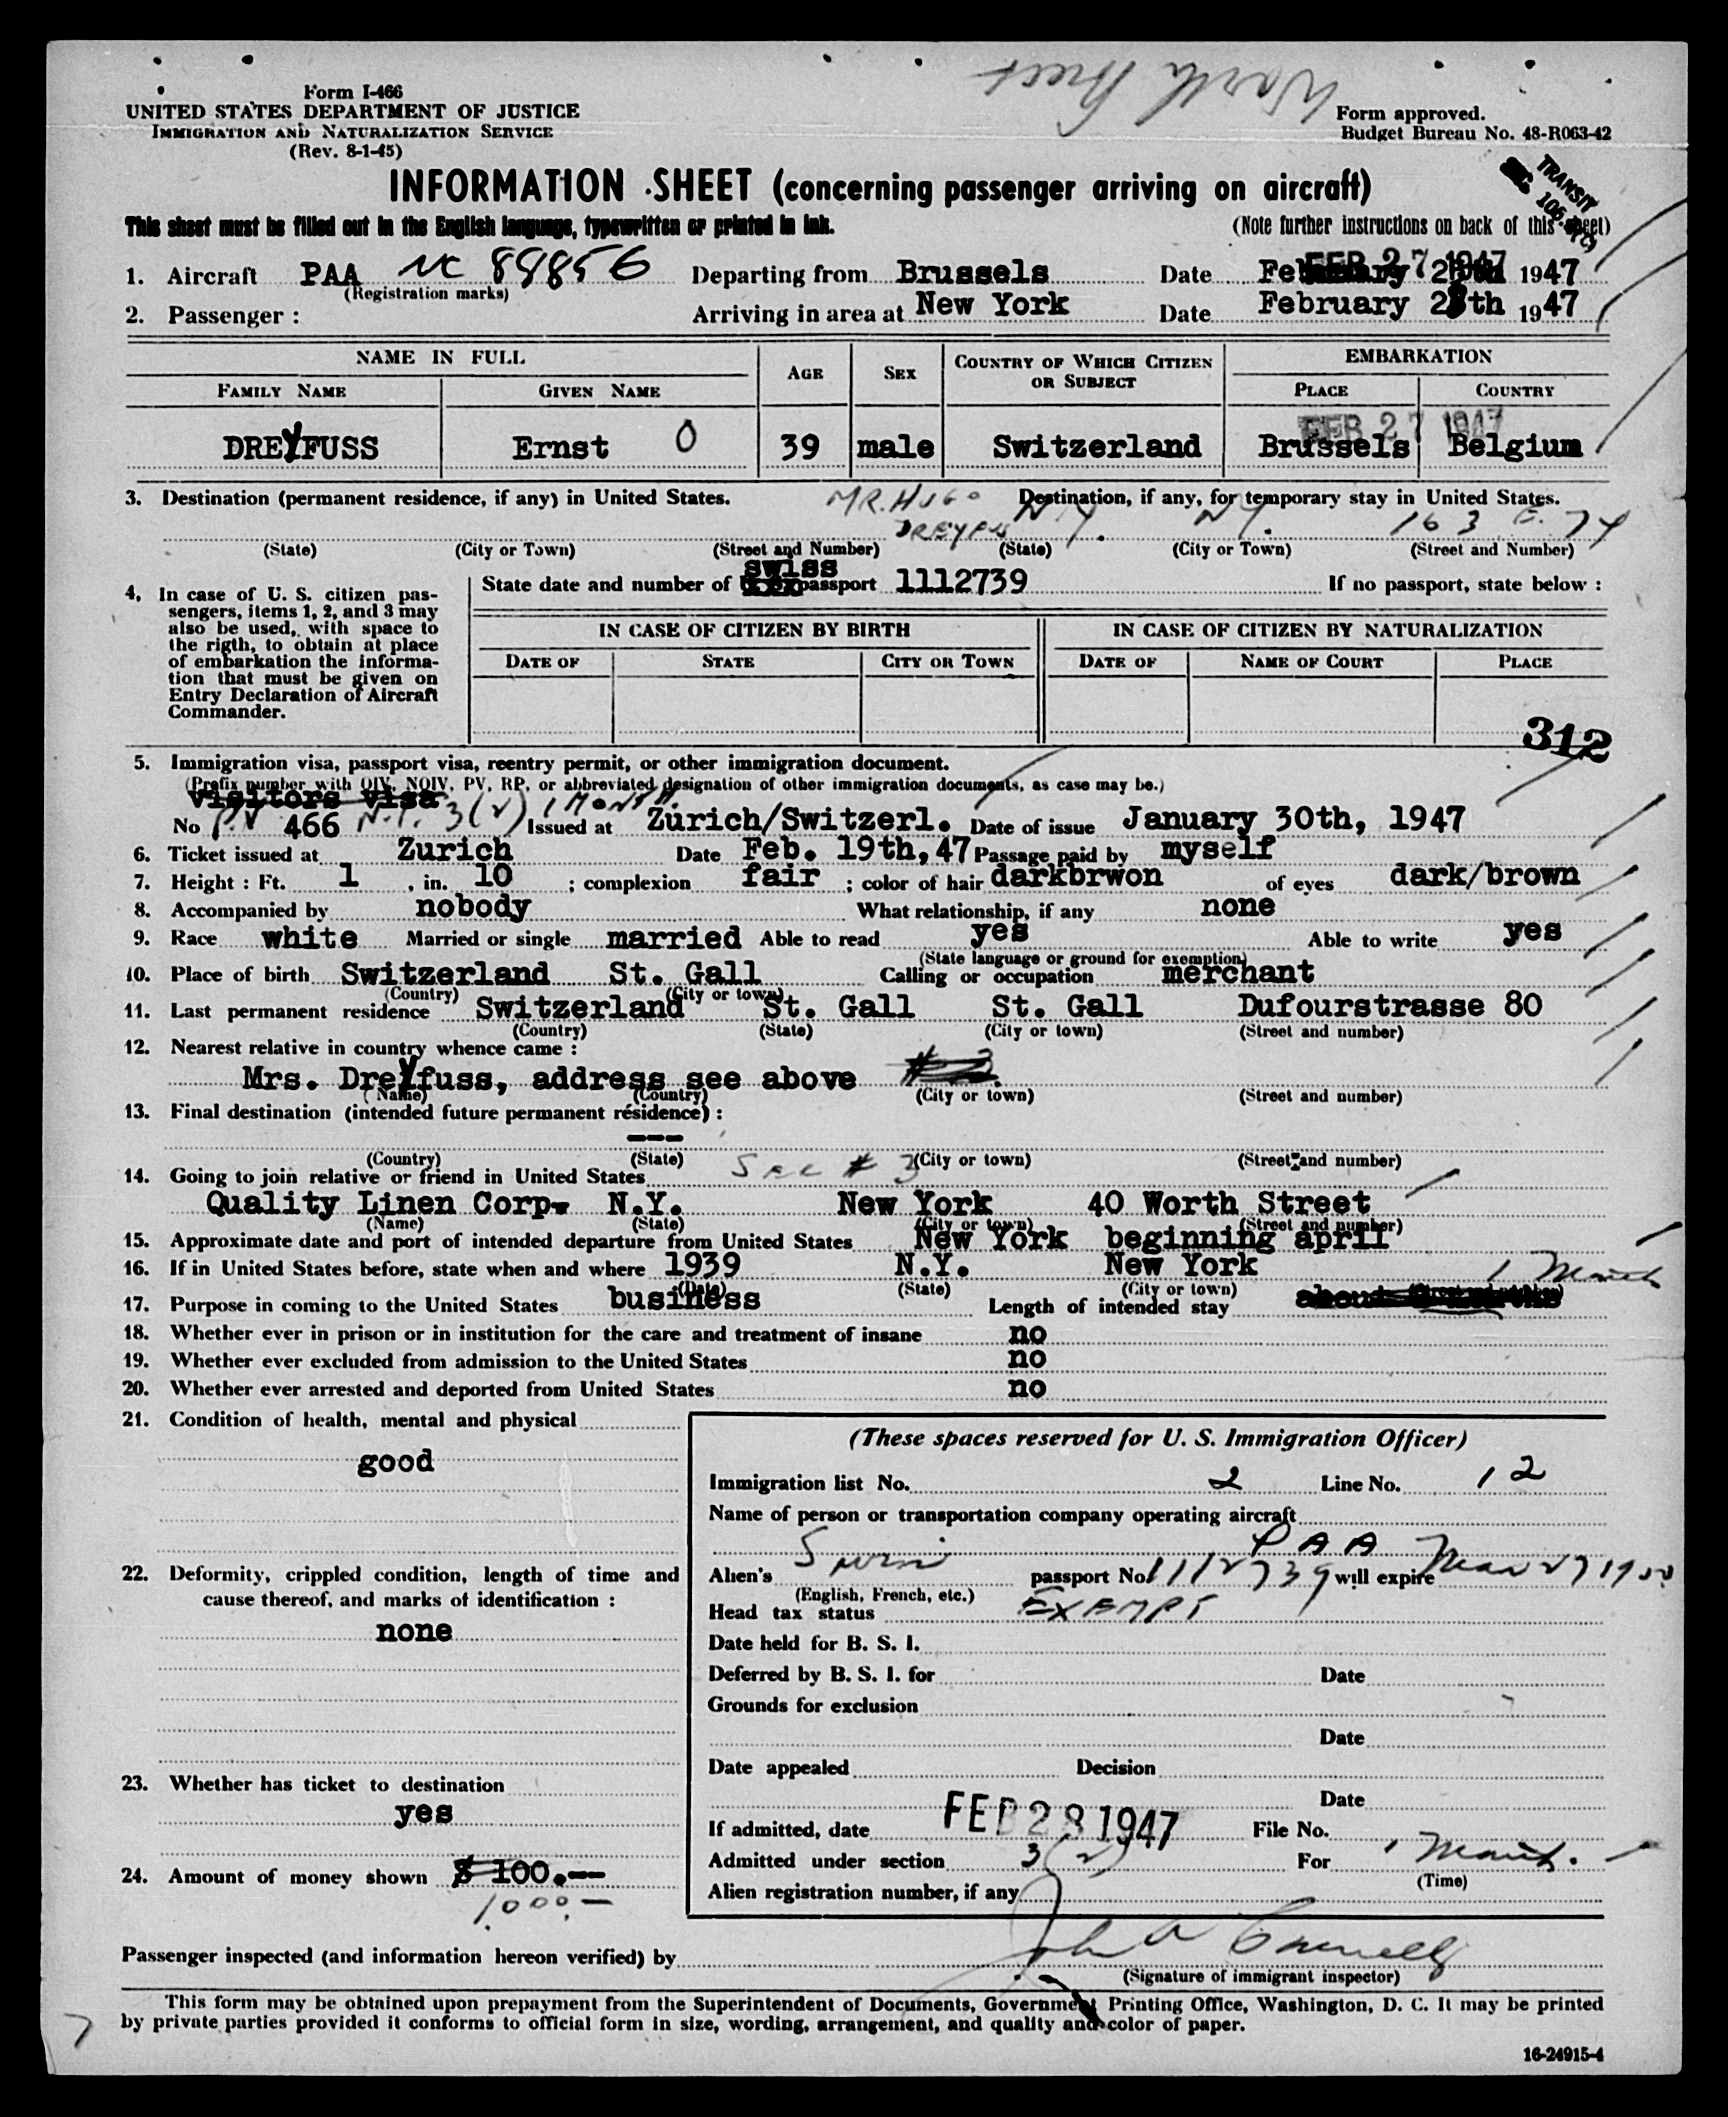 Worth Street
Form I-466
UNITED STATES DEPARTMENT OF JUSTICE
IMMIGRATION AND NATURALIZATION SERVICE
(Rev. 8-1-45)
Form approved.
Budget Bureau No. 48-R063-42
TRANSIT
INFORMATION SHEET (concerning passenger arriving on aircraft)
This sheet must be filled out in the English language, typewritten or printed in ink.
(Note further instructions on back of this sheet)
FEB 27 1947
1. Aircraft PAA NC 88856 Departing from Brussels Date February 1947
(Registration marks)
2. Passenger : Arriving in area at New York Date February 28th 1947
NAME IN FULL AGE SEX COUNTRY OF WHICH CITIZEN OR SUBJECT EMBARKATION
FAMILY NAME GIVEN NAME PLACE COUNTRY
FEB 27 1947
DREYFUSS Ernst 0 39 male Switzerland Brussels Belgium
3. Destination (permanent residence, if any) in United States. Destination, if any, for temporary stay in United States.
MR. HUGO DREYFUS N.Y. N.Y. 163 E. 74
(State) (City or Town) (Street and Number) (State) (City or Town) (Street and Number)
4. In case of U. S. citizen pas-
sengers, items 1, 2, and 3 may
also be used, with space to
the rigth, to obtain at place
of embarkation the informa-
tion that must be given on
Entry Declaration of Aircraft
Commander.
swiss
State date and number of passport 1112739 If no passport, state below :
IN CASE OF CITIZEN BY BIRTH IN CASE OF CITIZEN BY NATURALIZATION
DATE OF STATE CITY OR TOWN DATE OF NAME OF COURT PLACE
312
5. Immigration visa, passport visa, reentry permit, or other immigration document.
(Prefix number with QIV, NQIV, PV, RP, or abbreviated designation of other immigration documents, as case may be.)
visitors visa
No P.V 466 3(2) 1 MONTH. Issued at Zürich/Switzerl. Date of issue January 30th, 1947
6. Ticket issued at Zurich Date Feb. 19th,47 Passage paid by myself
7. Height : Ft. 1 , in. 10 ; complexion fair ; color of hair darkbrwon of eyes dark/brown
8. Accompanied by nobody What relationship, if any none
9. Race white Married or single married Able to read yes Able to write yes
(State language or ground for exemption)
10. Place of birth Switzerland St. Gall Calling or occupation merchant
(Country) (City or town)
11. Last permanent residence Switzerland St. Gall St. Gall Dufourstrasse 80
(Country) (State) (City or town) (Street and number)
12. Nearest relative in country whence came :
Mrs. Dreyfuss, address see above
(Name) (Country) (City or town) (Street and number)
13. Final destination (intended future permanent résidence) :
---
(Country) (State) (City or town) (Street and number)
14. Going to join relative or friend in United States SEE # 3
Quality Linen Corp. N.Y. New York 40 Worth Street
(Name) (State) (City or town) (Street and number)
15. Approximate date and port of intended departure from United States New York beginning april
16. If in United States before, state when and where 1939 N.Y. New York
(Date) (State) (City or town)
17. Purpose in coming to the United States business Length of intended stay 1 Month
18. Whether ever in prison or in institution for the care and treatment of insane no
19. Whether ever excluded from admission to the United States no
20. Whether ever arrested and deported from United States no
21. Condition of health, mental and physical
good
22. Deformity, crippled condition, length of time and
cause thereof, and marks of identification :
none
23. Whether has ticket to destination
yes
24. Amount of money shown $ 100.--
1.000.-
(These spaces reserved for U. S. Immigration Officer)
Immigration list No. 2 Line No. 12
Name of person or transportation company operating aircraft
PAA
Alien's Swiss passport No 1112739 will expire Mar 27 1950
(English, French, etc.)
Head tax status EXEMPT
Date held for B. S. I.
Deferred by B. S. I. for Date
Grounds for exclusion
Date
Date appealed Decision
Date
If admitted, date FEB 28 1947 File No.
Admitted under section 3(2) For 1 Month.
(Time)
Alien registration number, if any
Passenger inspected (and information hereon verified) by
(Signature of immigrant inspector)
This form may be obtained upon prepayment from the Superintendent of Documents, Government Printing Office, Washington, D. C. It may be printed
by private parties provided it conforms to official form in size, wording, arrangement, and quality and color of paper.
7
16-24915-4